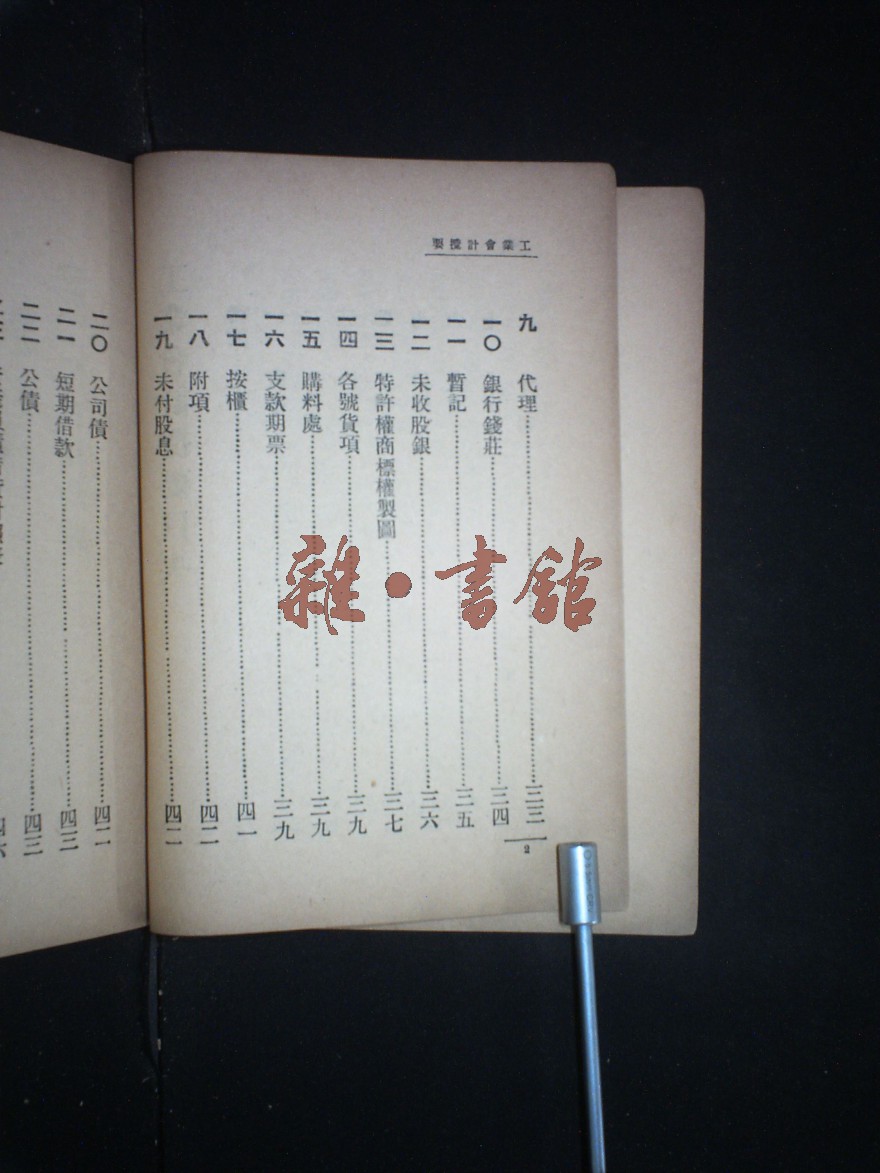 工業會計攬要
九 代理……三三
一〇 銀行錢莊……三四
一一 暫記……三五
一二 未收股銀……三六
一三 特許權商標權製圖……三七
一四 各號貨項……三九
一五 購料處……三九
一六 支款期票……三九
一七 按櫃……四一
一八 附項……四二
一九 未付股息……四二
2
二〇 公司債……四二
二一 短期借款……四三
二二 公債……四三
雜·書館